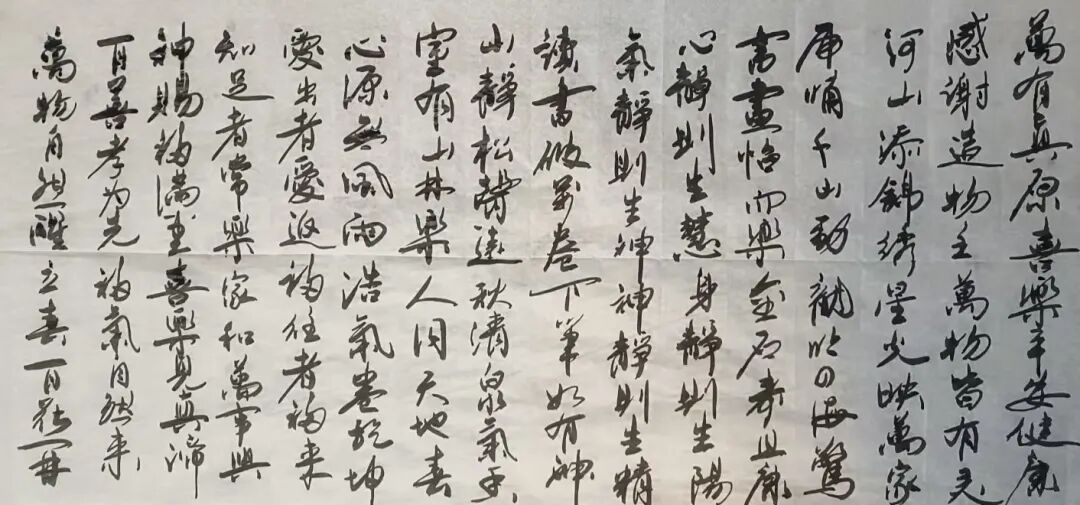 萬有真原喜樂平安健康
感謝造物主萬物皆有灵
河山添錦绣星光映萬家
虎啸千山動龍吟四海驚
書畫怡而樂金石寿且康
心靜則生慧身靜則生陽
氣靜則生神神靜則生精
讀書破萬卷下筆如有神
山靜松聲遠秋清泉氣香
室有山林樂人同天地春
心源無風雨浩氣卷乾坤
愛出者愛返福往者福来
知足者常樂家和萬事興
神賜福滿堂喜樂見真諦
百善孝为先福氣自然来
萬物自然醒立春百花开